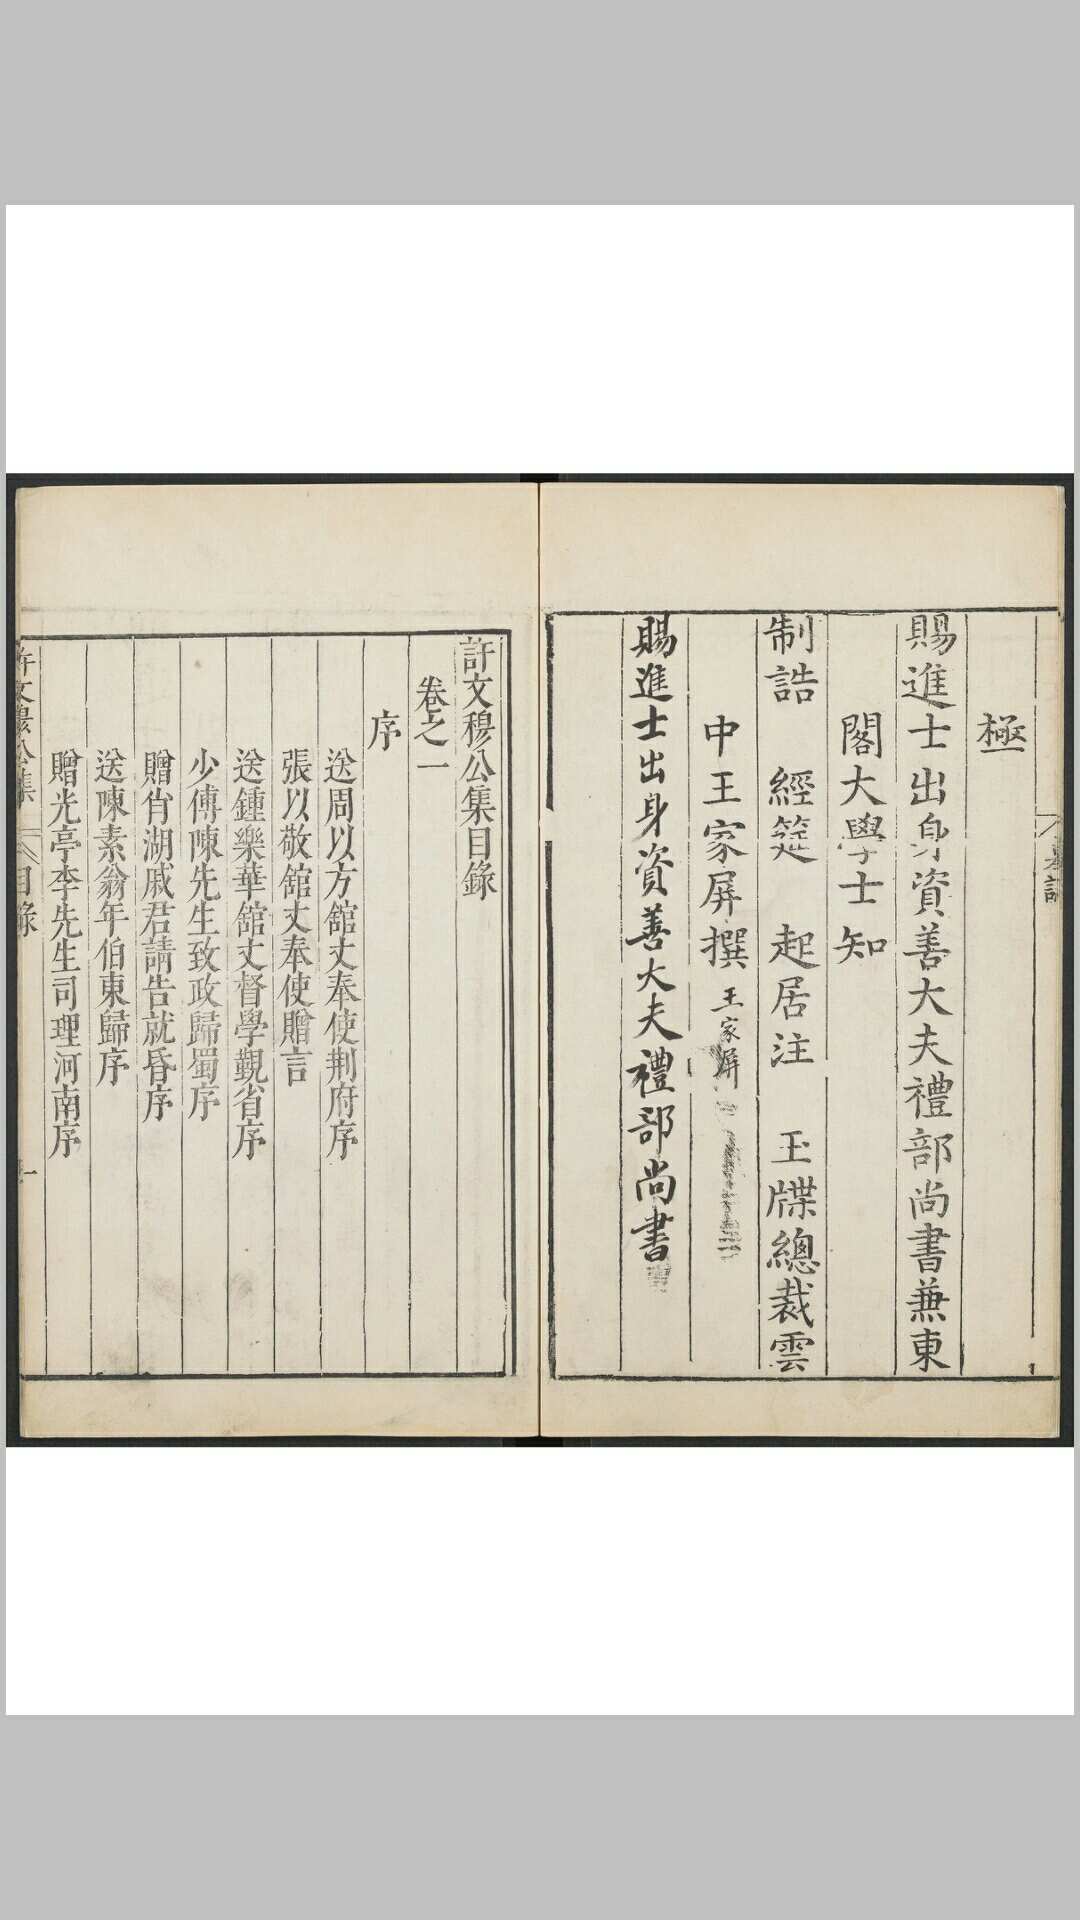 極
賜進士出身資善大夫禮部尚書兼東
閣大學士知
制誥　經筵　起居注　玉牒總裁雲
中王家屏撰 王家屏
賜進士出身資善大夫禮部尚書
許文穆公集目錄
卷之一
序
送周以方舘丈奉使荆府序
張以敬舘丈奉使贈言
送鍾樂華舘丈督學覲省序
少傅陳先生致政歸蜀序
贈肖湖戚君請告就昏序
送陳素翁年伯東歸序
贈光亭李先生司理河南序
許文穆公集　目錄　一